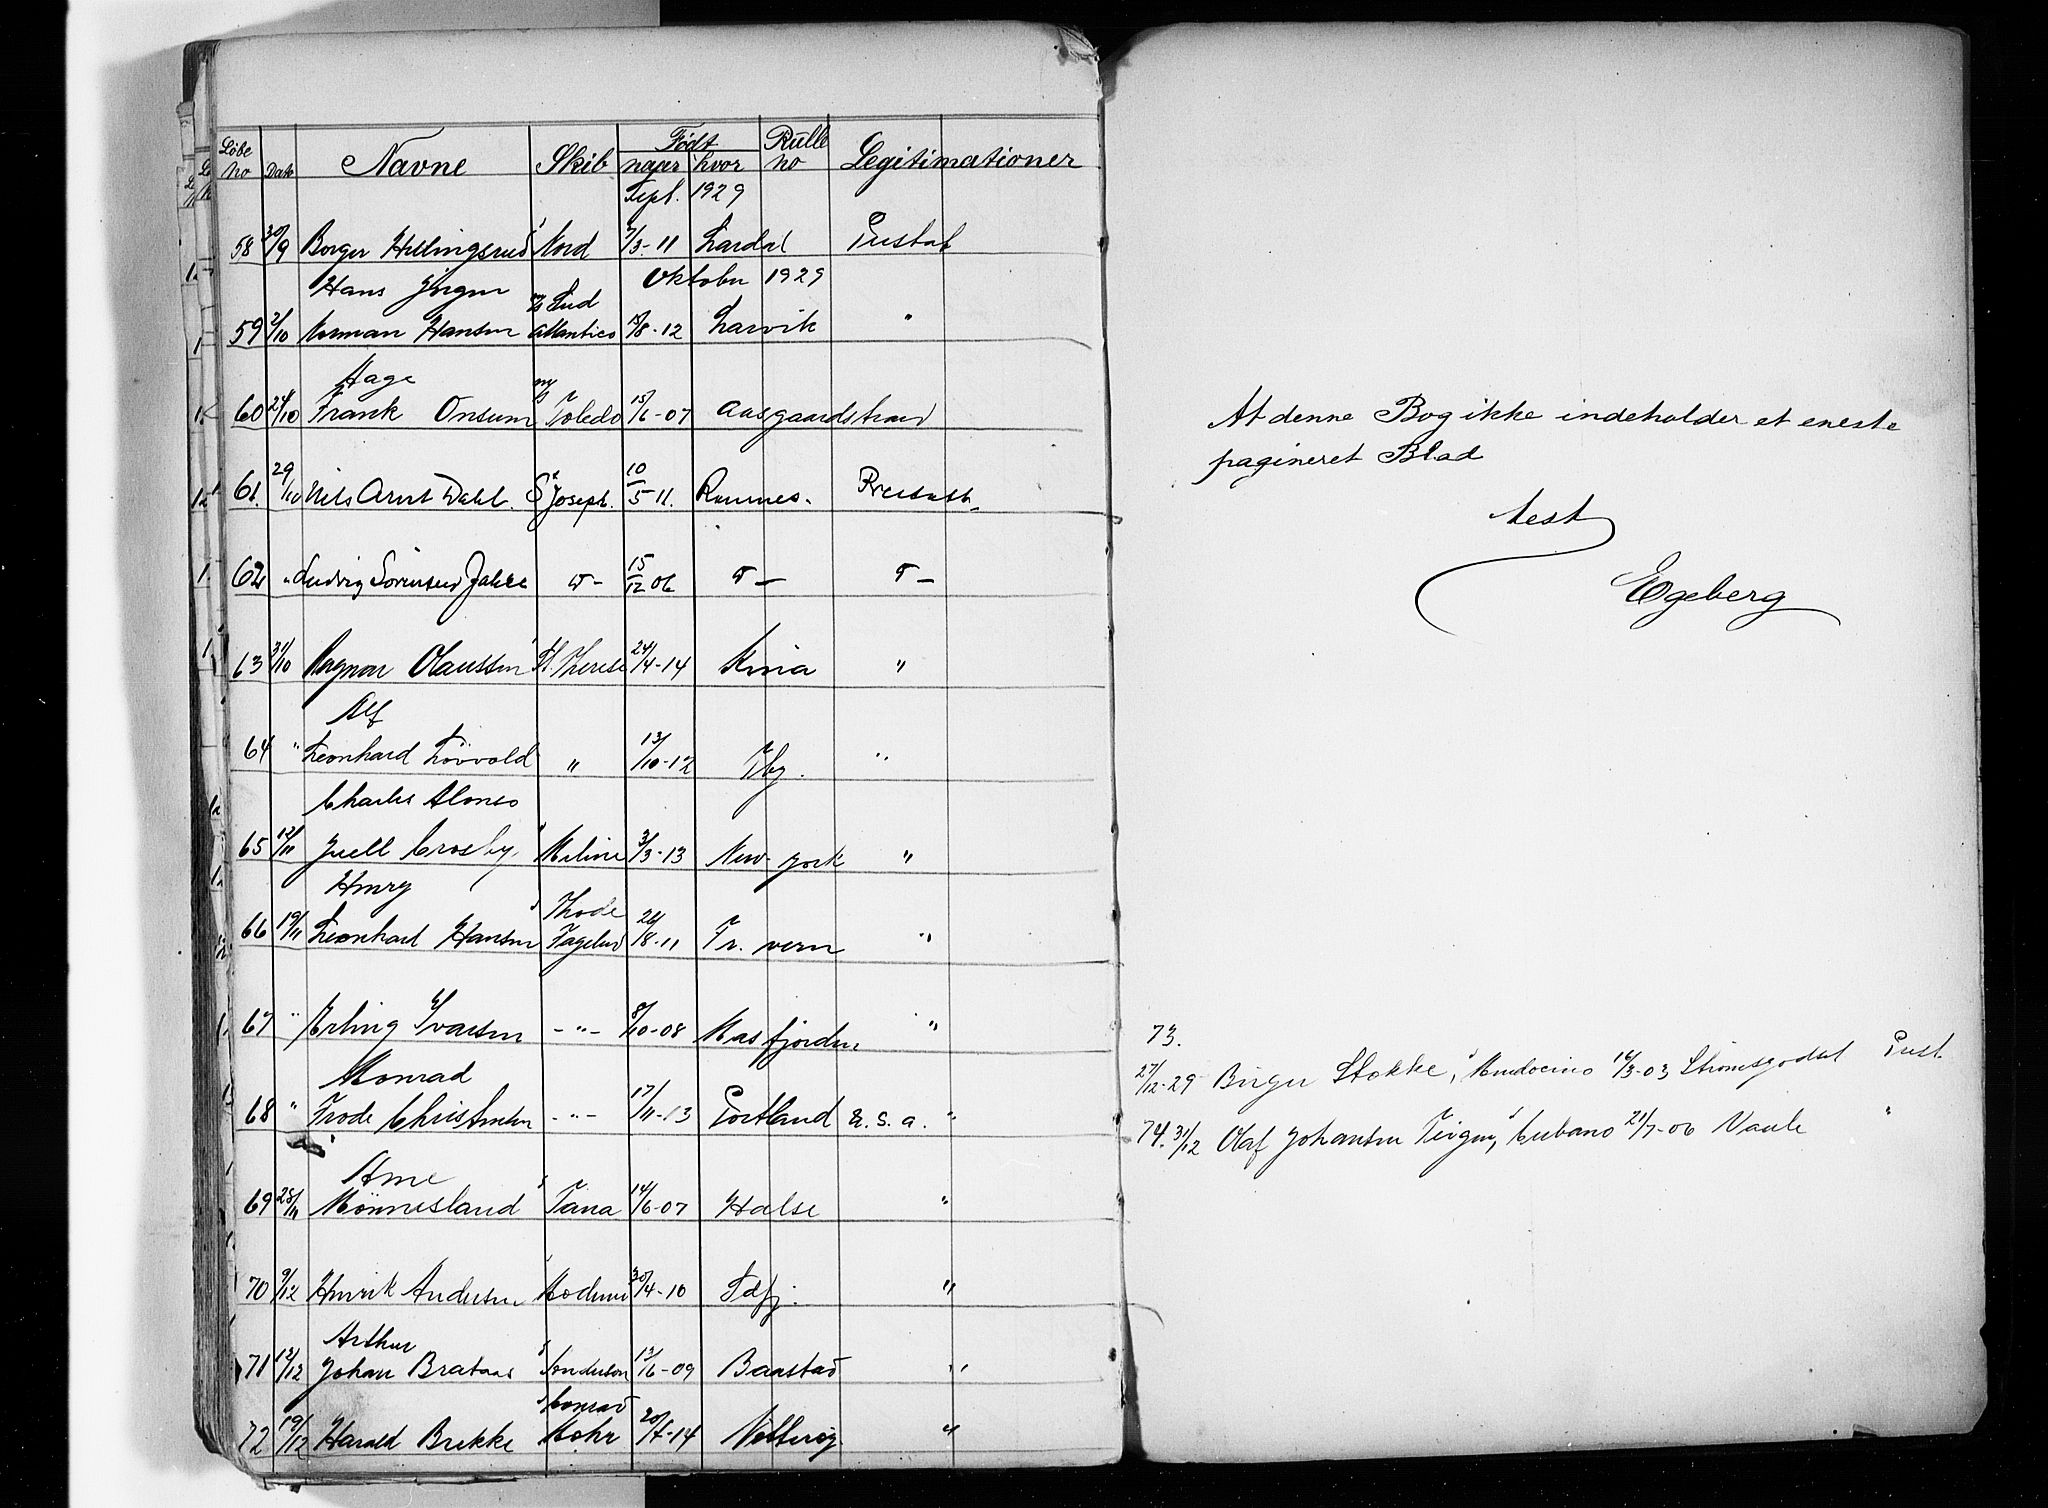 Løbe no Dato Navne Skib Født naar hvor Rulle no Legitimationer
Sept. 1929
58 30/9 Borger Hillingsrud Nord 7/3-11 Lardal Prestat
Hans Jørgen Oktober 1929
59 2/10 Norman Hansen Sud Atlantico 15/8-12 Larvik "
Aage
60 24/10 Frank Onsum Toledo 15/6-07 Aasgaardstrand
61. 29/10 Nils Arnt Dahl. St Joseph. 10/5 11. Ramnes. Prestatt.
62 " Ludvig Sørensen Jahre 15/12 06
63 31/10 Ragnar Olaussen St. Therese 24/4-14 Kina "
Alf
64 " Leonhard Løvvold " 13/10-12 Tbg. "
Charles Alonso
65 12/11 Juell Crosby. 3/3-13 New-York "
Henry
66 19/11 Leonhard Hansen Thode Fagelund 8-11 Fr. vern "
67 " Erling Ivarsen -"- 8/10-08 Masfjorden "
Monrad
68 " Frode Christensen -"- 17/11-13 Portland U.S.A. "
Arne
69 28/11 Mønnesland Tana 14/6-07 Halse "
70 9/12 Henrik Andersen 30/4-10 Sdfj. "
Arthur
71 12/12 Johan Brataas 13/6-09 Baastad "
72 19/12 Harald Brekke Conrad Mohr Nøtterøy "
At denne Bog ikke indeholder et eneste
pagineret Blad
test
Egeberg
73.
27/12-29 Birger Stokke, Mendocino 16/3-03 Strømsgodset Prest
74. 31/12 Olaf Johansen Teigen, Cubano 21/7-06 Vaale "